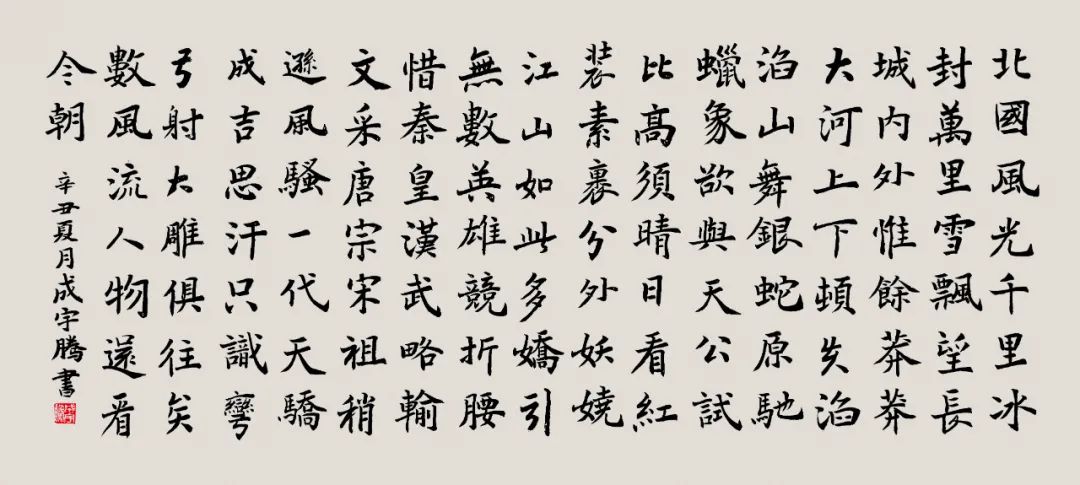 北國風光千里冰
封萬里雪飄望長
城內外惟餘莽莽
大河上下頓失滔
滔山舞銀蛇原馳
蠟象欲與天公試
比高須晴日看紅
裝素裹分外妖嬈
江山如此多嬌引
無數英雄競折腰
惜秦皇漢武略輸
文采唐宗宋祖稍
遜風騷一代天驕
成吉思汗只識彎
弓射大雕俱往矣
數風流人物還看
今朝
辛丑夏月成宇騰書